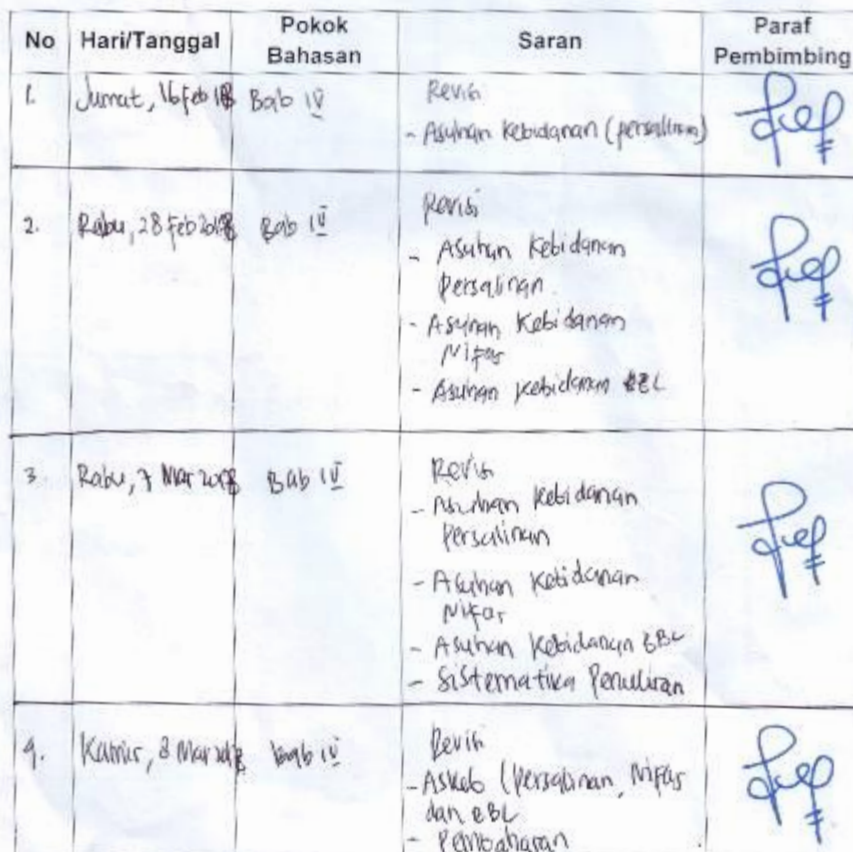 No Hari/Tanggal Pokok Bahasan Saran Paraf Pembimbing
1. Jumat, 16 Feb 18 Bab IV Revisi
- Asuhan Kebidanan (persalinan)
2. Rabu, 28 Feb 2018 Bab IV Revisi
- Asuhan Kebidanan
Persalinan
- Asuhan Kebidanan
Nifas
- Asuhan Kebidanan BBL
3. Rabu, 7 Mar 2018 Bab IV Revisi
- Asuhan Kebidanan
Persalinan
- Asuhan Kebidanan
Nifas
- Asuhan Kebidanan BBL
- Sistematika Penulisan
4. Kamis, 8 Mar 2018 Bab IV Revisi
- Askeb (Persalinan, Nifas
dan BBL
- Pembahasan